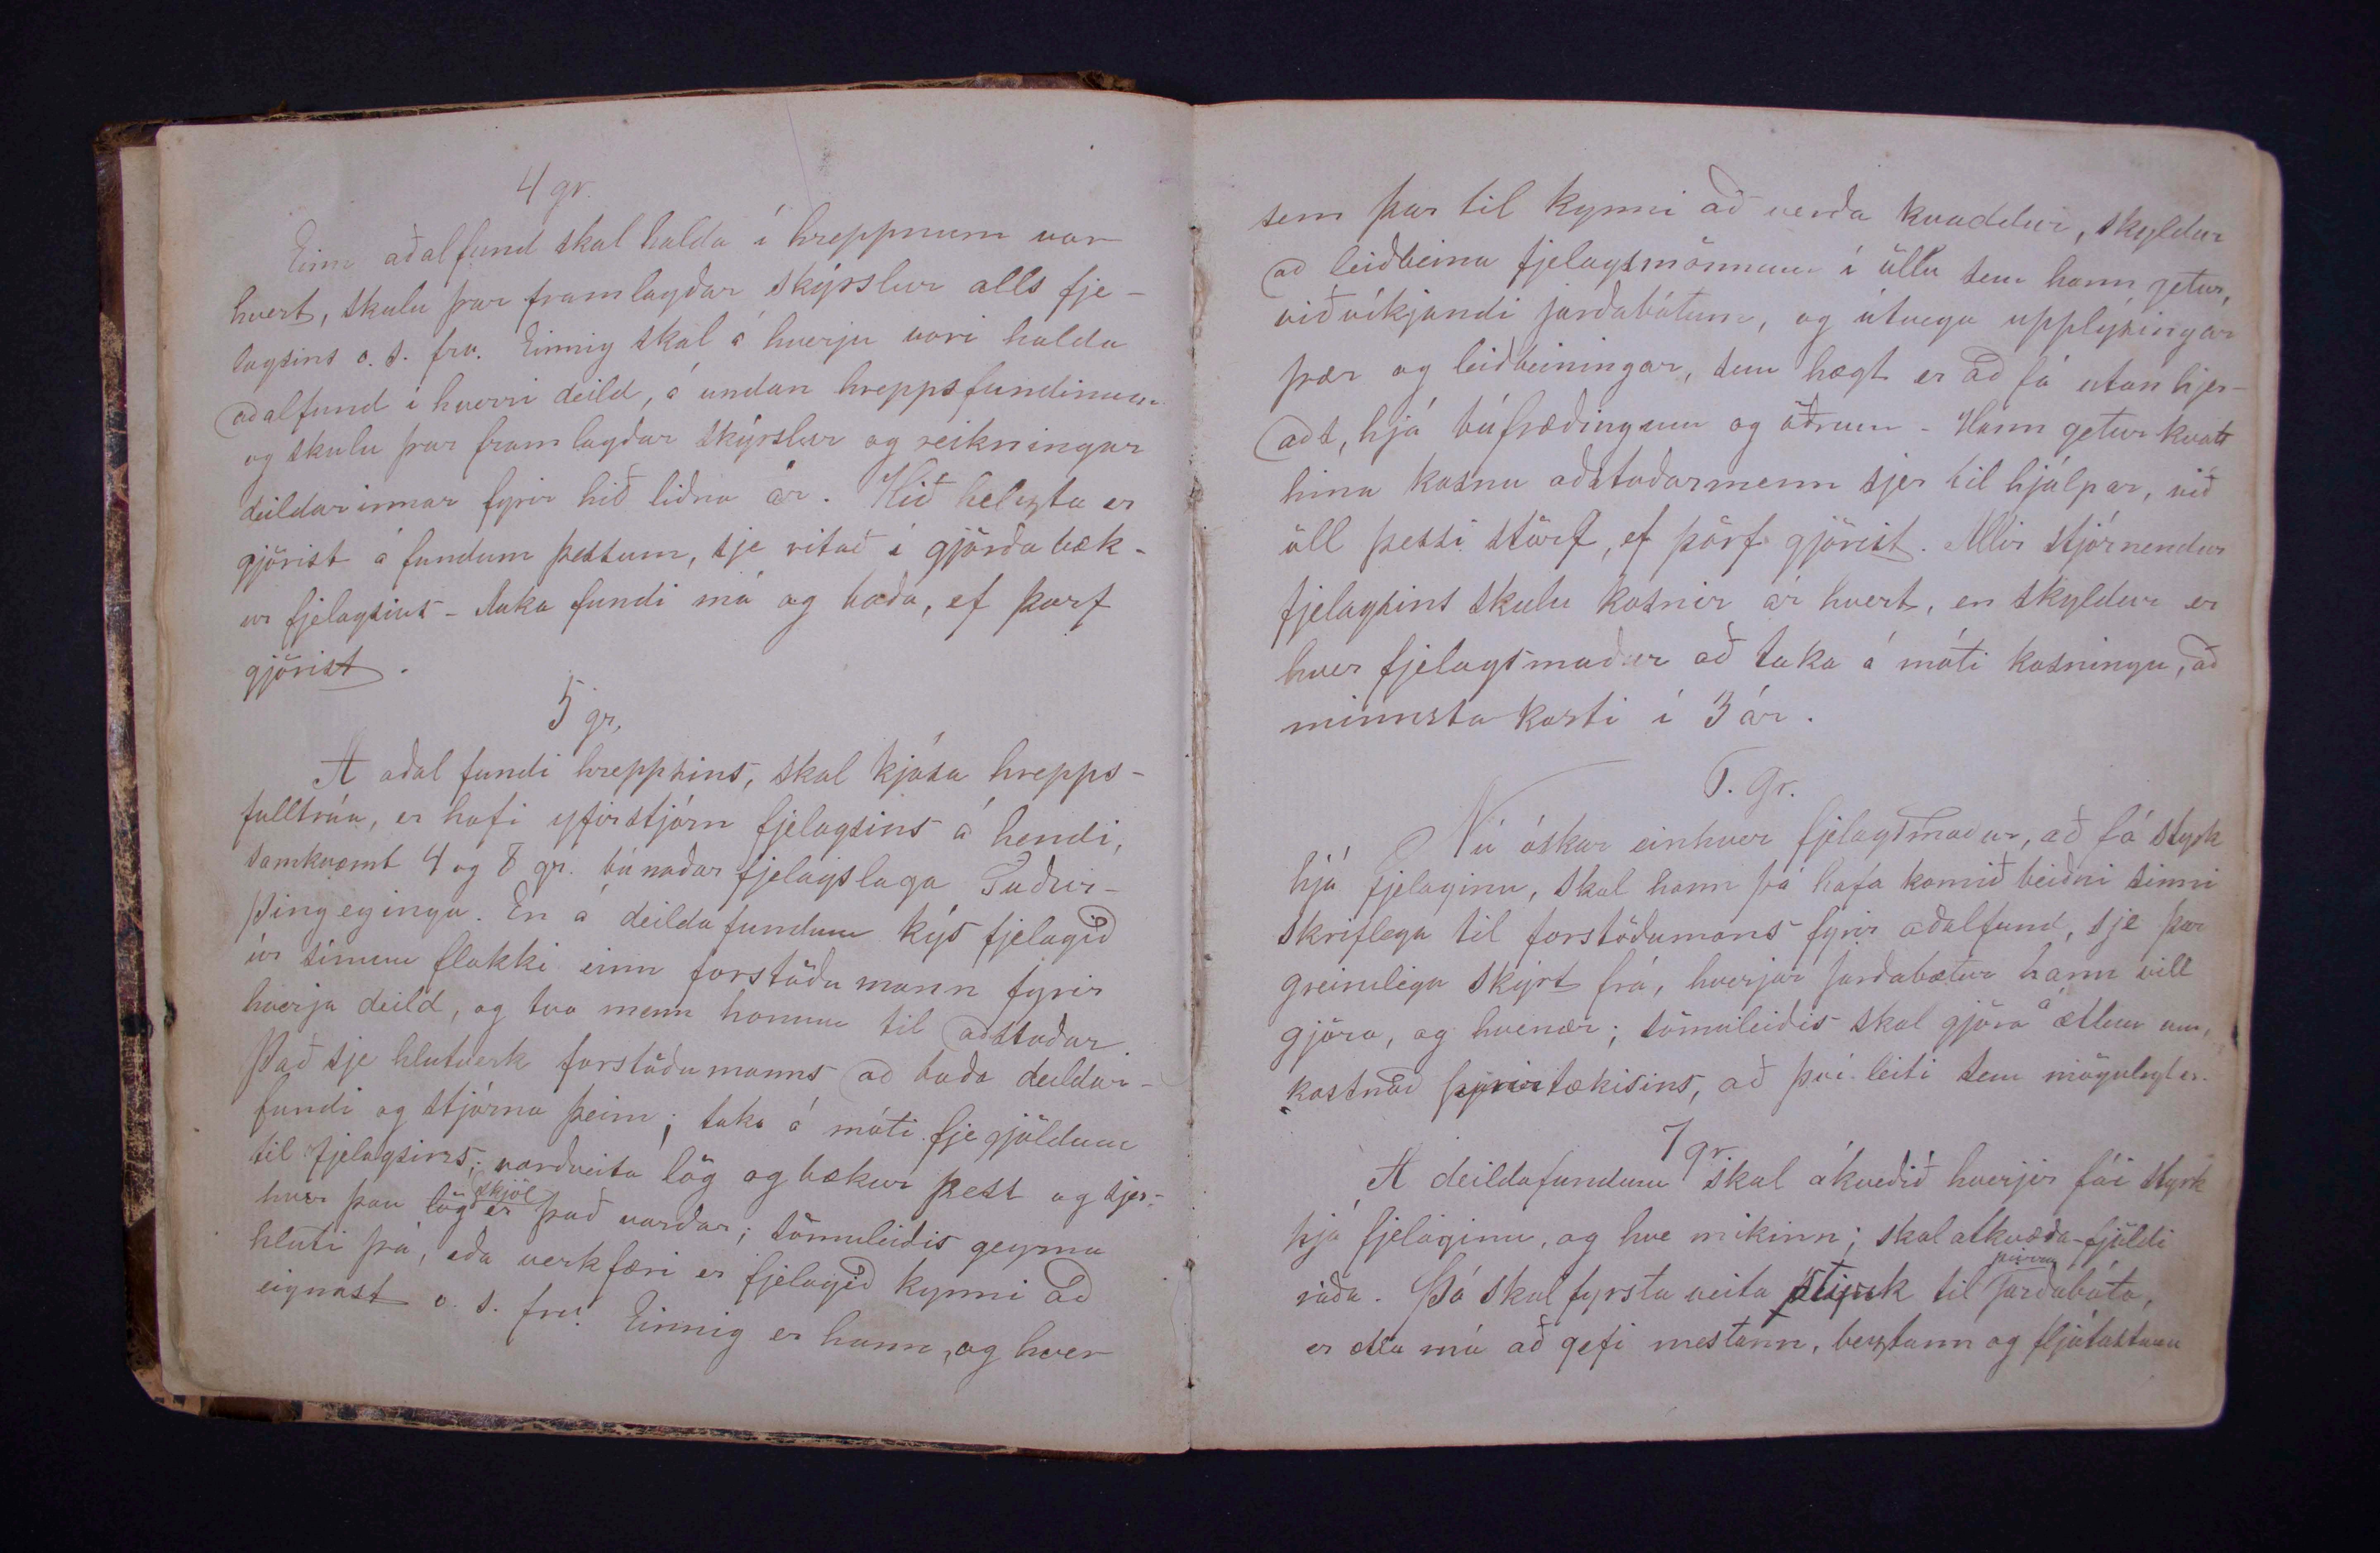 4 gr.
Einn aðalfund skal halda í hreppnum vor
hvert, skulu þar framlagðar skýrslur alls fje-
lagsins o. s. frv. Einnig skal á hverju vori halda
aðalfund í hverri deild, á undan hreppsfundinum
og skulu þar framlagðar skýrslur og reikningar
deildarinnar fyrir hið liðna ár. Hið helzta er
gjörist á fundum þessum, sje ritað í gjörðabæk-
ur fjelagsins - Auka fundi má og boða, ef þörf
gjörist.
5 gr.
A aðal fundi hreppsins, skal kjósa hrepps-
fulltrúa, er hafi yfirstjórn fjelagsins á hendi,
samkvæmt 4 og 8 gr. búnaðar fjelagslaga Suður-
Þingeyinga. En á deildafundum kýs fjelagið
úr sínum flokki einn forstöðu mann fyrir
hverja deild, og tvo menn honum til aðstoðar.
Það sje hlutverk forstöðumanns að boða deildar-
fundi og stjórna þeim; taka á móti fjegjöldum
til fjelagsins; varðveita lög og bækur þess og sjer-
hver þau lög skjöl er það varðar; sömuleiðis geyma
hluti þá, eða verkfæri er fjelagið kynni að
eignast o. s. frv. Einnig er hann, og hver
sem þar til kynni að verða kvaddur, skyldur
að leiðbeina fjelagsmönnum í öllu sem hann getur,
viðvíkjandi jarðabótum, og útvega upplýsingar
þær og leiðbeiningar, sem hægt er að fá utan hjer-
aðs, hjá búfræðingum og öðrum - Hann getur kvatt
hina kosnu aðstoðarmenn sjer til hjálpar, við
öll þessi störf, ef þörf gjörist. Allir stjórnendur
fjelagsins skulu kosnir ár hvert, en skyldur er
hver fjelagsmaður að taka á móti kosningu, að
minnsta kosti í 3 ár.
6. Gr.
Nú óskar einhver fjelagsmaður, að fá styrk
hjá fjelaginu, skal hann þá hafa komið beiðni sinni
skriflega til forstöðumans fyrir aðalfund, sje þar
greinilega skýrt frá, hverjar jarðabætur hann vill
gjöra, og hvenær; sömuleiðis skal gjöra á ætlun um,
kostnað fyrirtækisins, að því leiti sem mögulegt er.
7 gr.
A deildafundum skal ákveðið hverjir fái styrk
hjá fjelaginu, og hve mikinn; skal atkvæða-fjöldi
ráða. Þó skal fyrsta veita styrk til þeirra jarðabóta,
er ætla má að gefi mestann, beztann og fljótastann